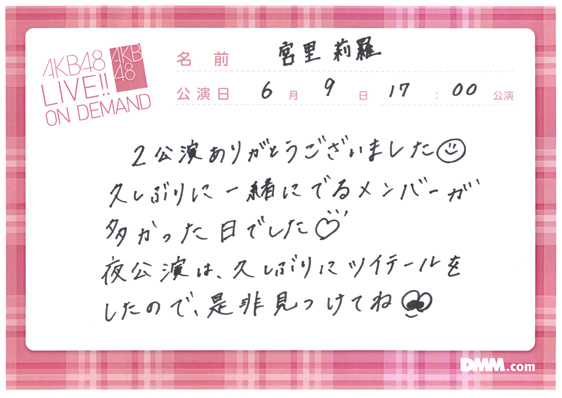 AKB48
LIVE!!
ON DEMAND
AKB
48
名前 宮里莉羅
公演日 6月9日 17:00公演
2公演ありがとうございました
久しぶりに一緒にでるメンバーが
多かった日でした♡
夜公演は、久しぶりにツイテールを
したので、是非見つけてね
DMM.com